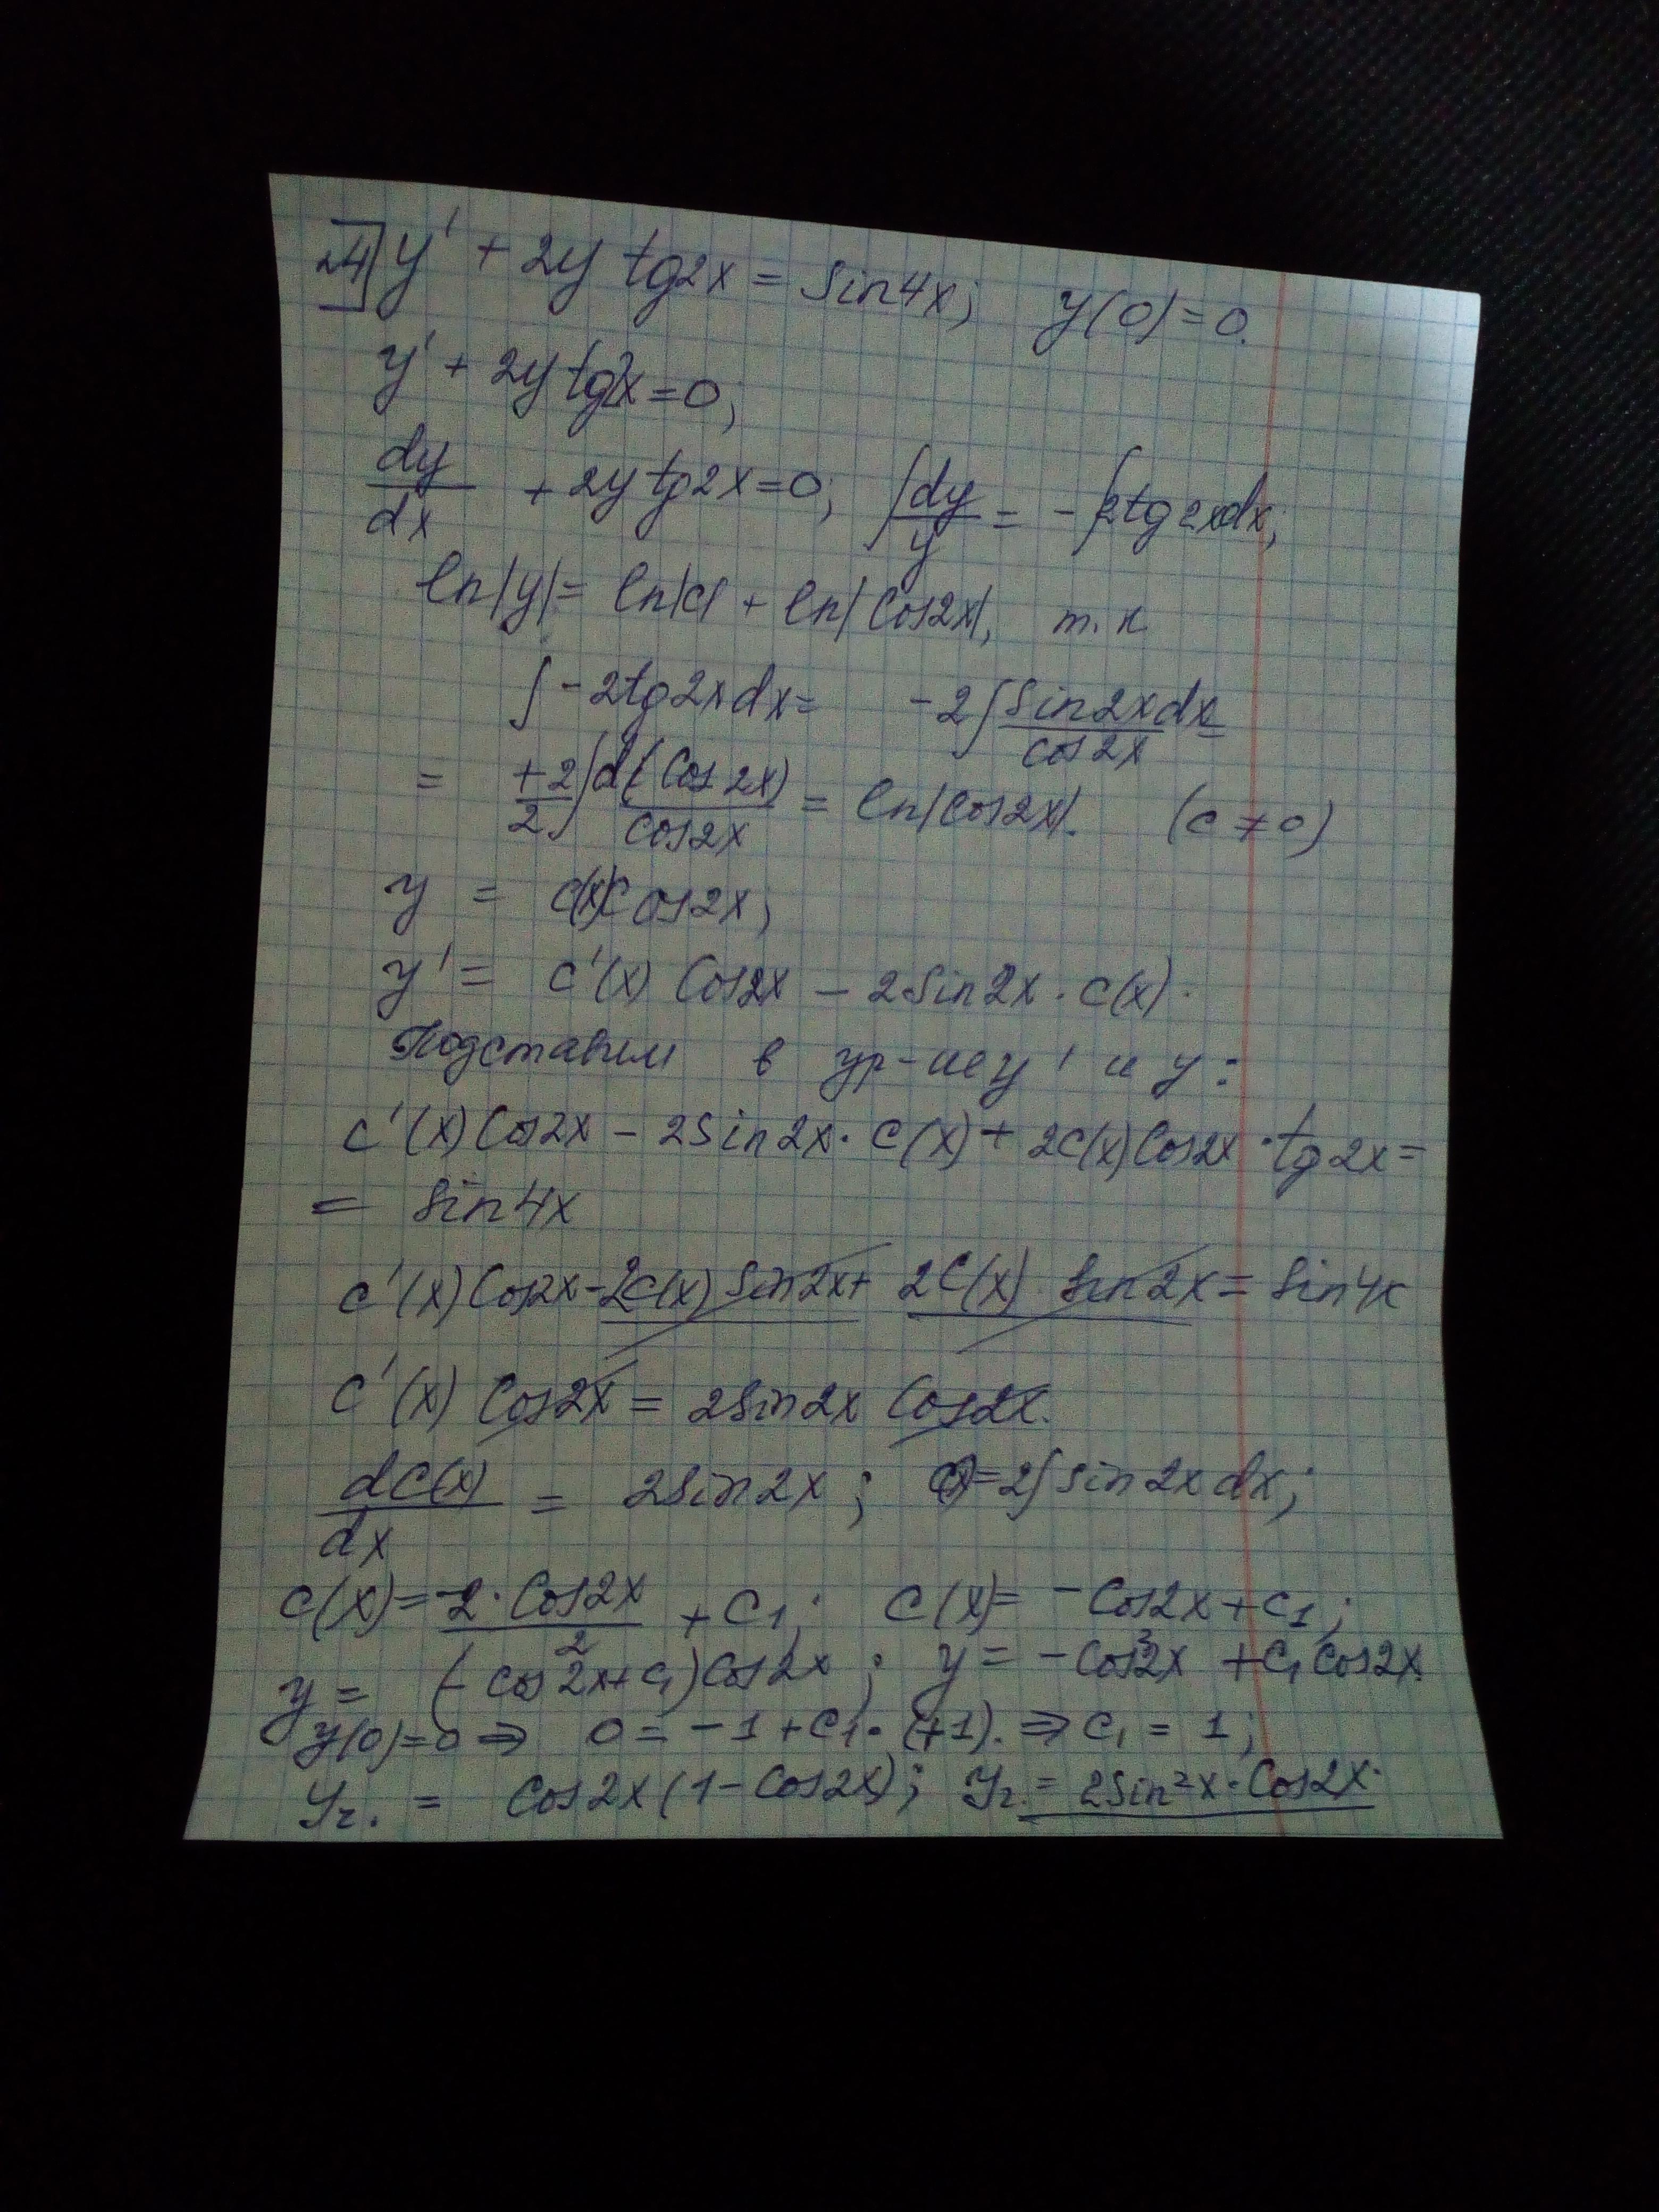 24] y' + 2y tg2x = sin4x; y(0)=0.
y' + 2y tg2x = 0;
dy/dx + 2y tg2x = 0; ∫dy/y = -∫2tg2xdx;
ln|y| = ln|c| + ln|Cos2x|, т.к
∫-2tg2xdx = -2∫sin2xdx/cos2x
= +2/2∫d(Cos2x)/Cos2x = ln|Cos2x|. (c ≠ 0)
y = c(x)Cos2x;
y' = c'(x) Cos2x - 2Sin2x · c(x).
Подставим в ур-ие y' и y:
c'(x)Cos2x - 2Sin2x · c(x) + 2c(x)Cos2x · tg2x =
= sin4x
c'(x)Cos2x - 2c(x) sin2x + 2c(x) · sin2x = sin4x
c'(x) Cos2x = 2Sin2x Cos2x.
dc(x)/dx = 2Sin2x; = 2∫sin2xdx;
c(x) = -2·Cos2x/2 + c₁; c(x) = -Cos2x + c₁;
y = (-cos2x+c₁)Cos2x; y = -Cos²2x + c₁Cos2x.
y(0)=0 ⇒ 0 = -1 + c₁·(+1). ⇒ c₁ = 1;
yг. = Cos2x(1-Cos2x); yг. = 2Sin²x·Cos2x.